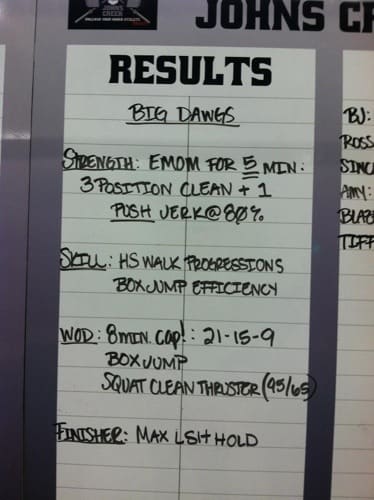 JOHNS
CREEK
JOHNS CR
RESULTS
BIG DAWGS
STRENGTH: EMOM FOR 5 MIN:
3 POSITION CLEAN + 1
PUSH JERK @ 80%
SKILL: HS WALK PROGRESSIONS
BOX JUMP EFFICIENCY
WOD: 8 MIN. CAP!: 21-15-9
BOX JUMP
SQUAT CLEAN THRUSTER (95/65)
FINISHER: MAX L SIT HOLD
BJ:
ROSS
SINC
AMY:
BLAZE
TIFF